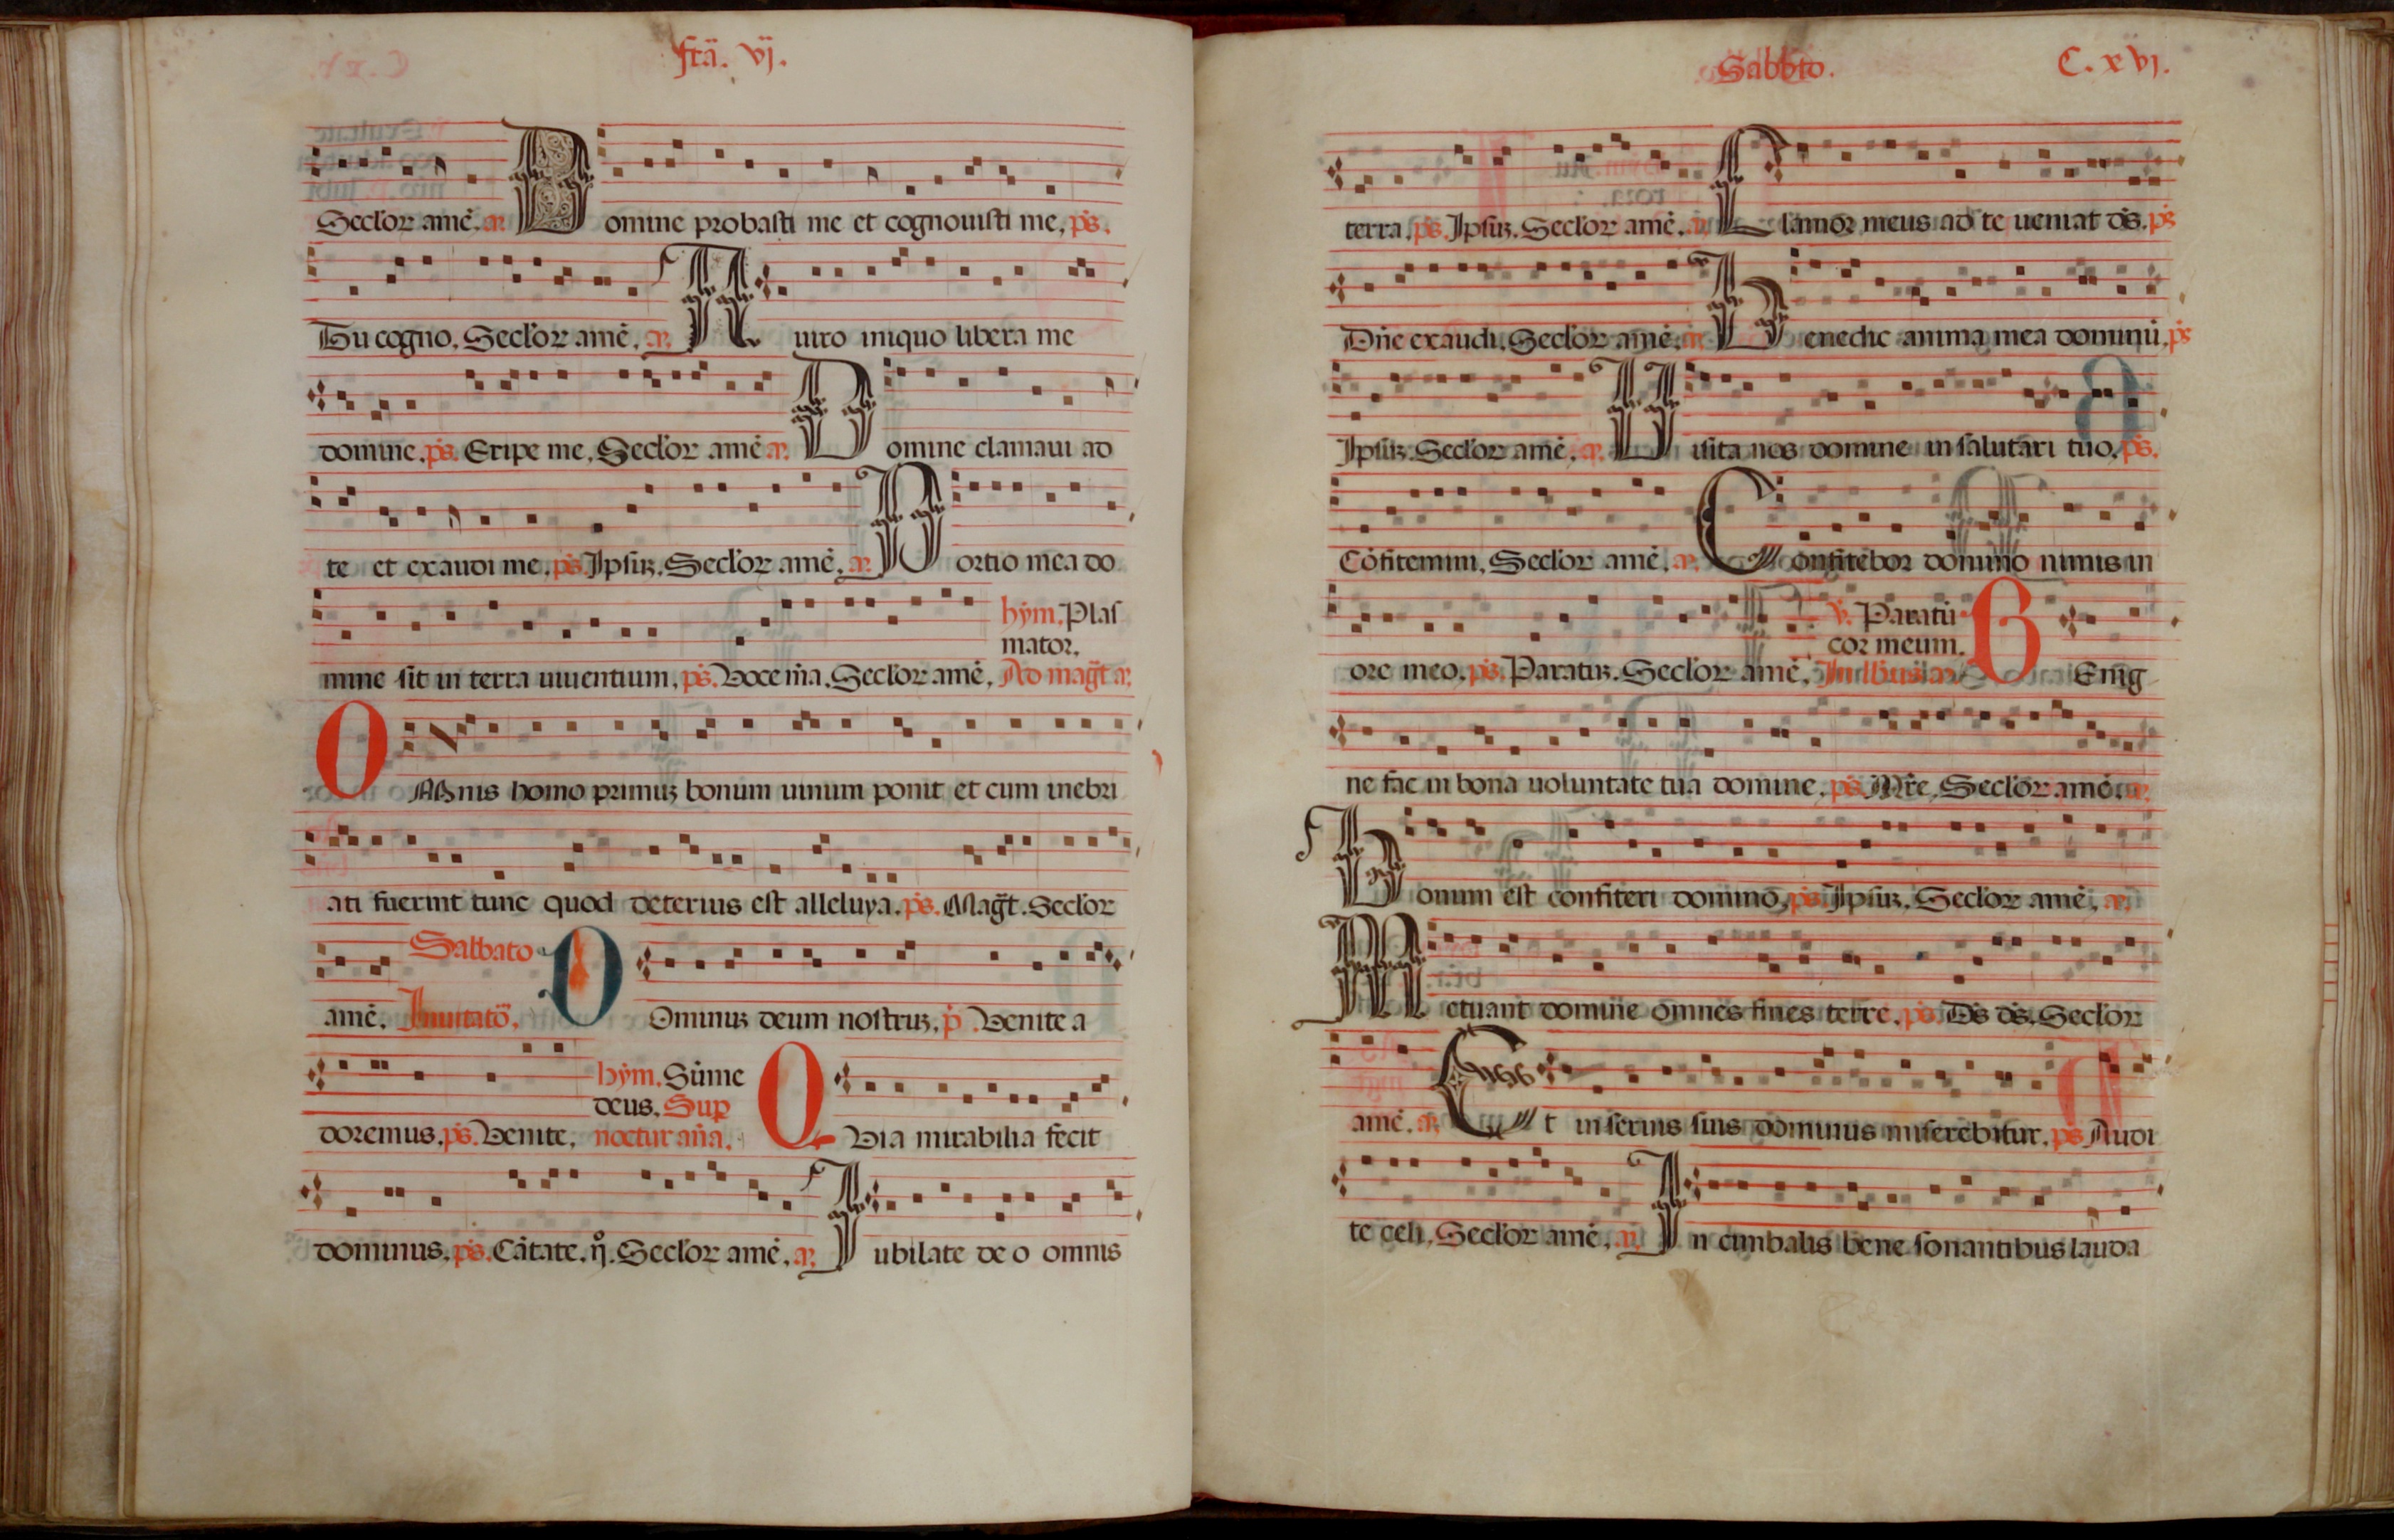 ftã. vj.
Seclor amẽ. añ. Domine probasti me et cognouisti me, ps.
Tu cogno. Seclor amẽ. añ. A uiro iniquo libera me
domine. ps. Eripe me. Seclor amẽ añ. Domine clamaui ad
te et exaudi me. ps. Ipsuʒ. Seclor amẽ. añ. Portio mea do
hym. Plas
mator.
mine sit in terra uiuentium. ps. Voce ma. Seclor amẽ. Ad magt añ.
OMnis homo primuʒ bonum uinum ponit et cum inebri
ati fuerint tunc quod deterius est alleluya. ps. Magt. Seclor
Sabbato
amẽ. Inuitato. DOminuʒ deum nostruʒ. p. Venite a
hym. Sũme
deus. Sup
doremus. ps. Venite. noctur aña. QVia mirabilia fecit
dominus. ps. Cãtate. Seclor amẽ. añ. Iubilate deo omnis
Sabbto. C. xvj.
terra. ps. Ipsuʒ. Seclor amẽ. añ. Clamor meus ad te ueniat ds. ps
Dñe exaudi. Seclor amẽ. añ. Benedic anima mea dominũ. ps
Ipsuʒ. Seclor amẽ. añ. Uisita nos domine in salutari tuo. ps.
Cõfitemini. Seclor amẽ. añ. Confitebor domino nimis in
v. Paratũ
cor meum.
ore meo. ps. Paratuʒ. Seclor amẽ. In lbus añ. BEnig
ne fac in bona uoluntate tua domine. ps. Mre. Seclor amẽ. añ.
Bonum est confiteri domino. ps. Ipsuʒ. Seclor amẽ. añ.
Metuant domine omnes fines terre. ps. Ds ds. Seclor
amẽ. añ. Et in seruis suis dominus miserebitur. ps. Audi
te celi. Seclor amẽ. añ. In cimbalis bene sonantibus lauda